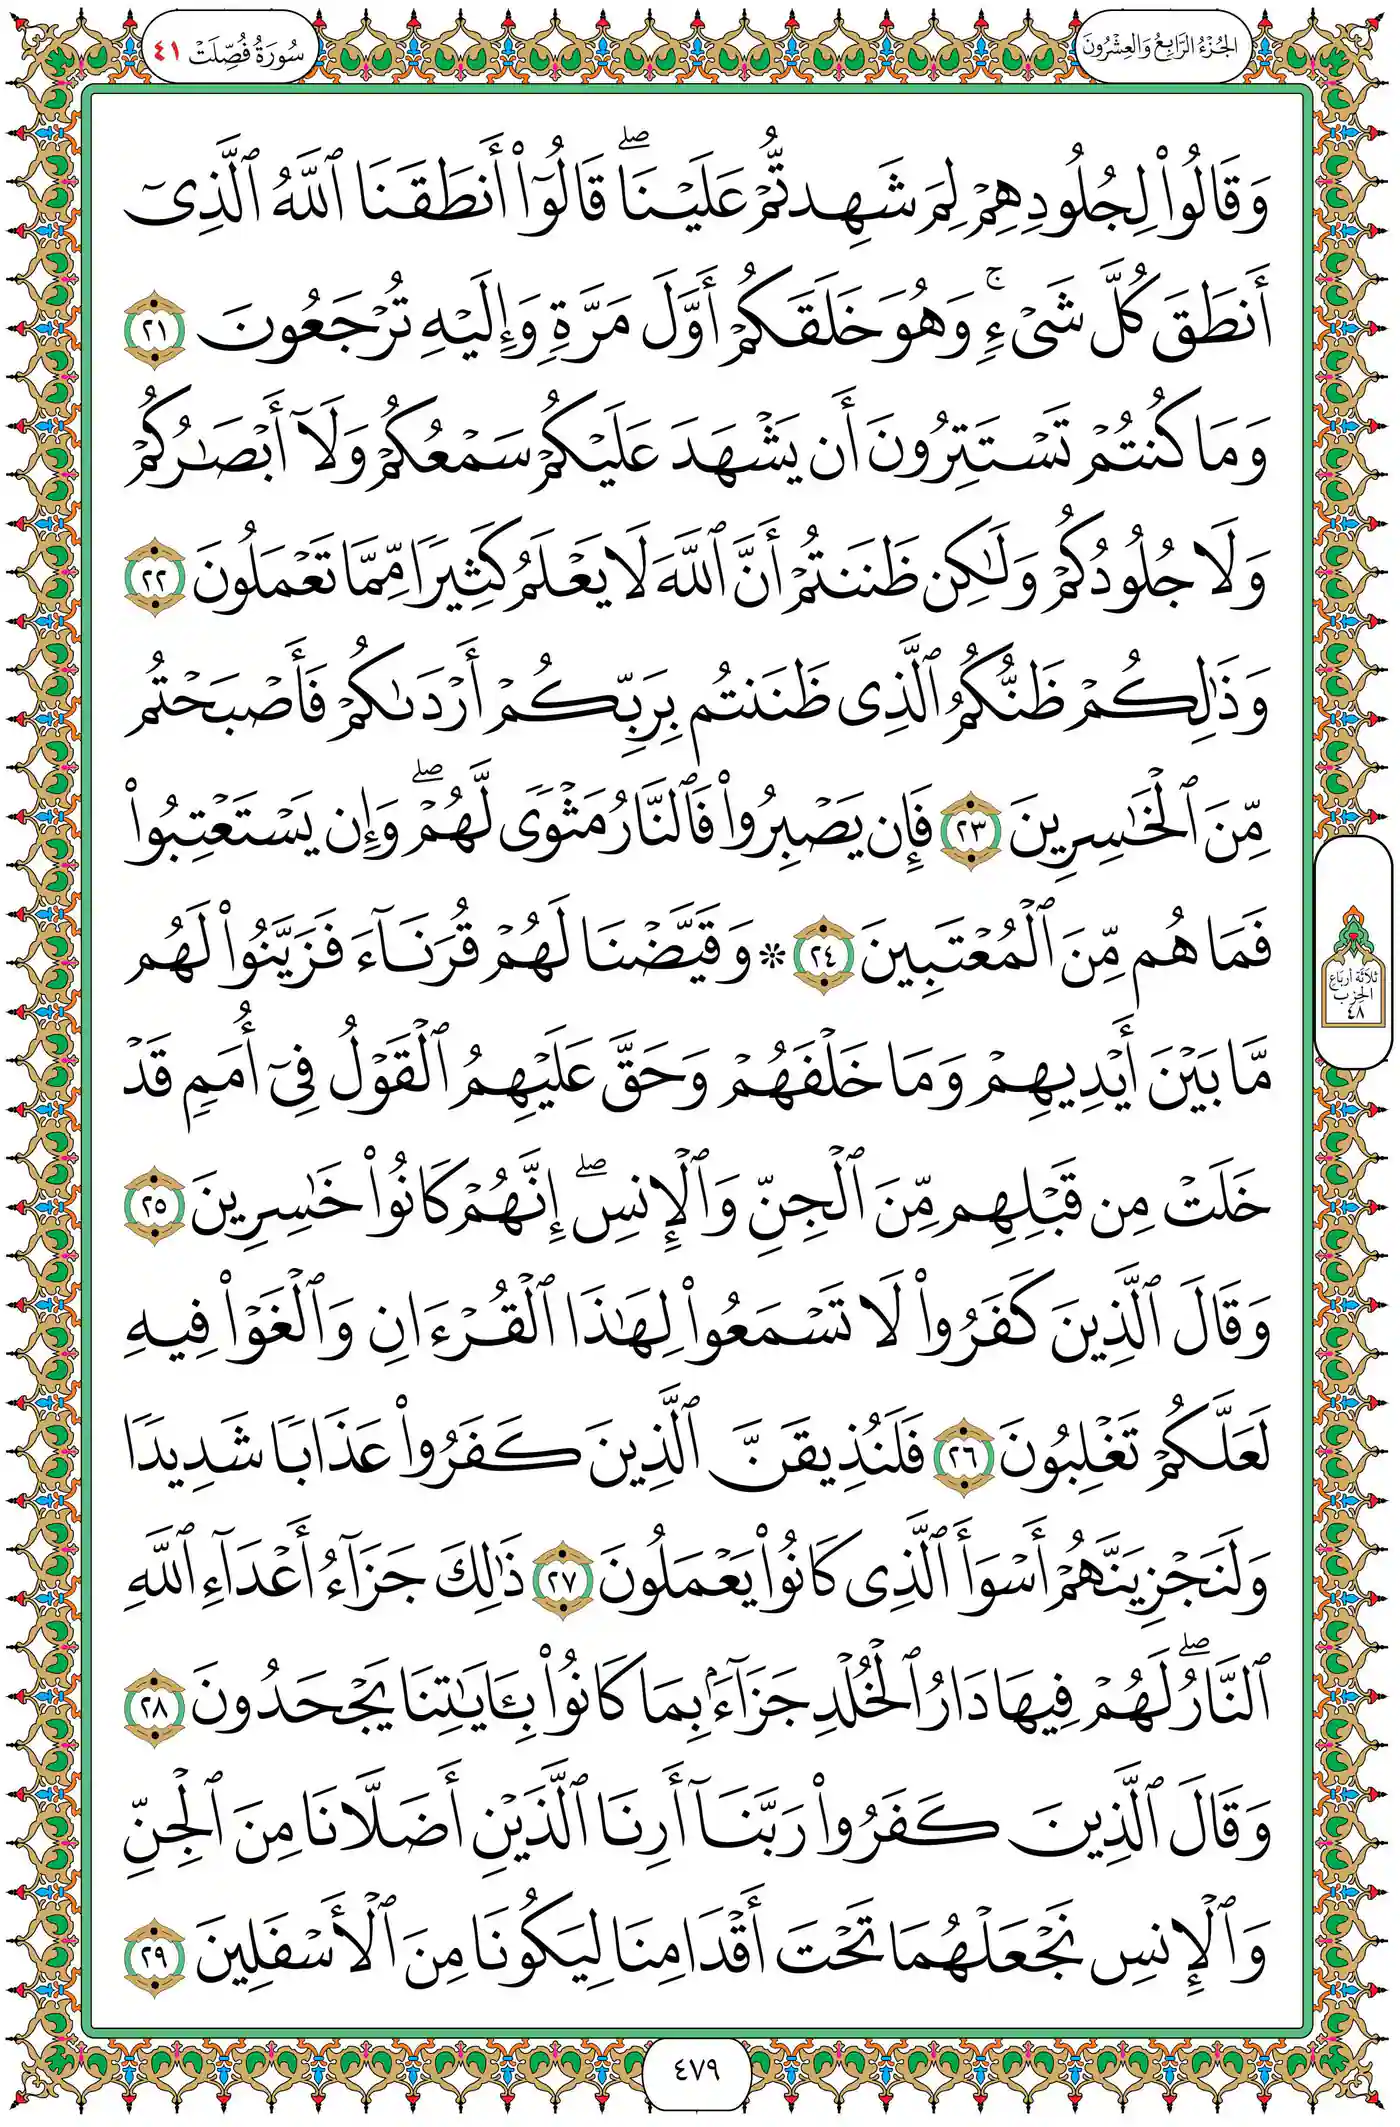 الجُزْءُ الرَّابِعُ وَالعِشْرُونَ
سُورَةُ فُصِّلَتْ ٤١
وَقَالُوا۟ لِجُلُودِهِمْ لِمَ شَهِدتُّمْ عَلَيْنَا ۖ قَالُوٓا۟ أَنطَقَنَا ٱللَّهُ ٱلَّذِىٓ
أَنطَقَ كُلَّ شَىْءٍ ۚ وَهُوَ خَلَقَكُمْ أَوَّلَ مَرَّةٍ وَإِلَيْهِ تُرْجَعُونَ ٢١
وَمَا كُنتُمْ تَسْتَتِرُونَ أَن يَشْهَدَ عَلَيْكُمْ سَمْعُكُمْ وَلَآ أَبْصَـٰرُكُمْ
وَلَا جُلُودُكُمْ وَلَـٰكِن ظَنَنتُمْ أَنَّ ٱللَّهَ لَا يَعْلَمُ كَثِيرًا مِّمَّا تَعْمَلُونَ ٢٢
وَذَٰلِكُمْ ظَنُّكُمُ ٱلَّذِى ظَنَنتُم بِرَبِّكُمْ أَرْدَىٰكُمْ فَأَصْبَحْتُم
مِّنَ ٱلْخَـٰسِرِينَ ٢٣ فَإِن يَصْبِرُوا۟ فَٱلنَّارُ مَثْوًى لَّهُمْ ۖ وَإِن يَسْتَعْتِبُوا۟
فَمَا هُم مِّنَ ٱلْمُعْتَبِينَ ٢٤ * وَقَيَّضْنَا لَهُمْ قُرَنَآءَ فَزَيَّنُوا۟ لَهُم
مَّا بَيْنَ أَيْدِيهِمْ وَمَا خَلْفَهُمْ وَحَقَّ عَلَيْهِمُ ٱلْقَوْلُ فِىٓ أُمَمٍ قَدْ
خَلَتْ مِن قَبْلِهِم مِّنَ ٱلْجِنِّ وَٱلْإِنسِ ۖ إِنَّهُمْ كَانُوا۟ خَـٰسِرِينَ ٢٥
وَقَالَ ٱلَّذِينَ كَفَرُوا۟ لَا تَسْمَعُوا۟ لِهَـٰذَا ٱلْقُرْءَانِ وَٱلْغَوْا۟ فِيهِ
لَعَلَّكُمْ تَغْلِبُونَ ٢٦ فَلَنُذِيقَنَّ ٱلَّذِينَ كَفَرُوا۟ عَذَابًا شَدِيدًا
وَلَنَجْزِيَنَّهُمْ أَسْوَأَ ٱلَّذِى كَانُوا۟ يَعْمَلُونَ ٢٧ ذَٰلِكَ جَزَآءُ أَعْدَآءِ ٱللَّهِ
ٱلنَّارُ ۖ لَهُمْ فِيهَا دَارُ ٱلْخُلْدِ جَزَآءًۢ بِمَا كَانُوا۟ بِـَٔايَـٰتِنَا يَجْحَدُونَ ٢٨
وَقَالَ ٱلَّذِينَ كَفَرُوا۟ رَبَّنَآ أَرِنَا ٱلَّذَيْنِ أَضَلَّانَا مِنَ ٱلْجِنِّ
وَٱلْإِنسِ نَجْعَلْهُمَا تَحْتَ أَقْدَامِنَا لِيَكُونَا مِنَ ٱلْأَسْفَلِينَ ٢٩
ثَلَاثَة أَربَاع
الحِزب
٤٨
٤٧٩